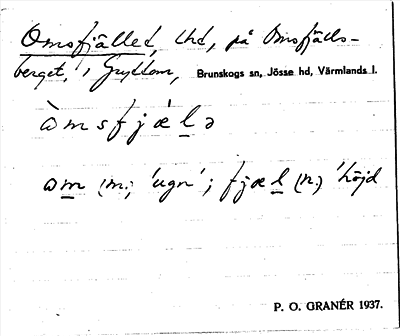 Omsfjället, lhd, på Omsfjälls-
berget, i Gryttom, Brunskogs sn, Jösse hd, Värmlands l.
òmsfjælə
om (m.) 'ugn'; fjæl (n.) 'höjd
P. O. GRANÉR 1937.